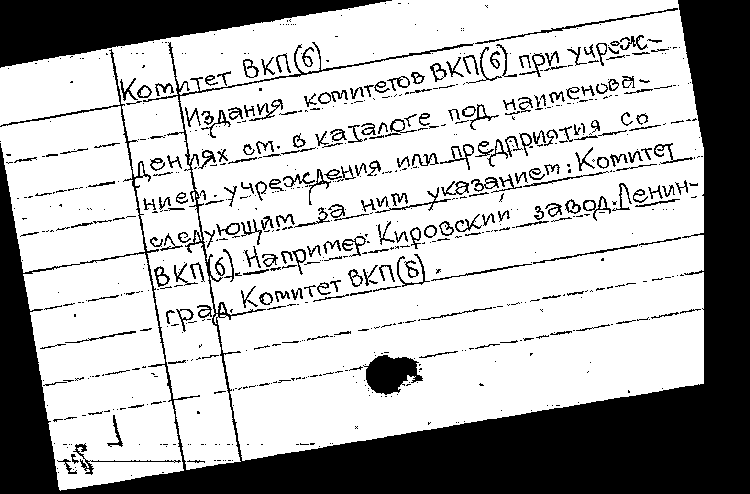 Комитет ВКП(б).
Издания комитетов ВКП(б) при учреж-
дениях см. в каталоге под наименова-
нием учреждения или предприятия со
следующим за ним указанием: Комитет
ВКП(б). Например: Кировский завод. Ленин-
град. Комитет ВКП(б).